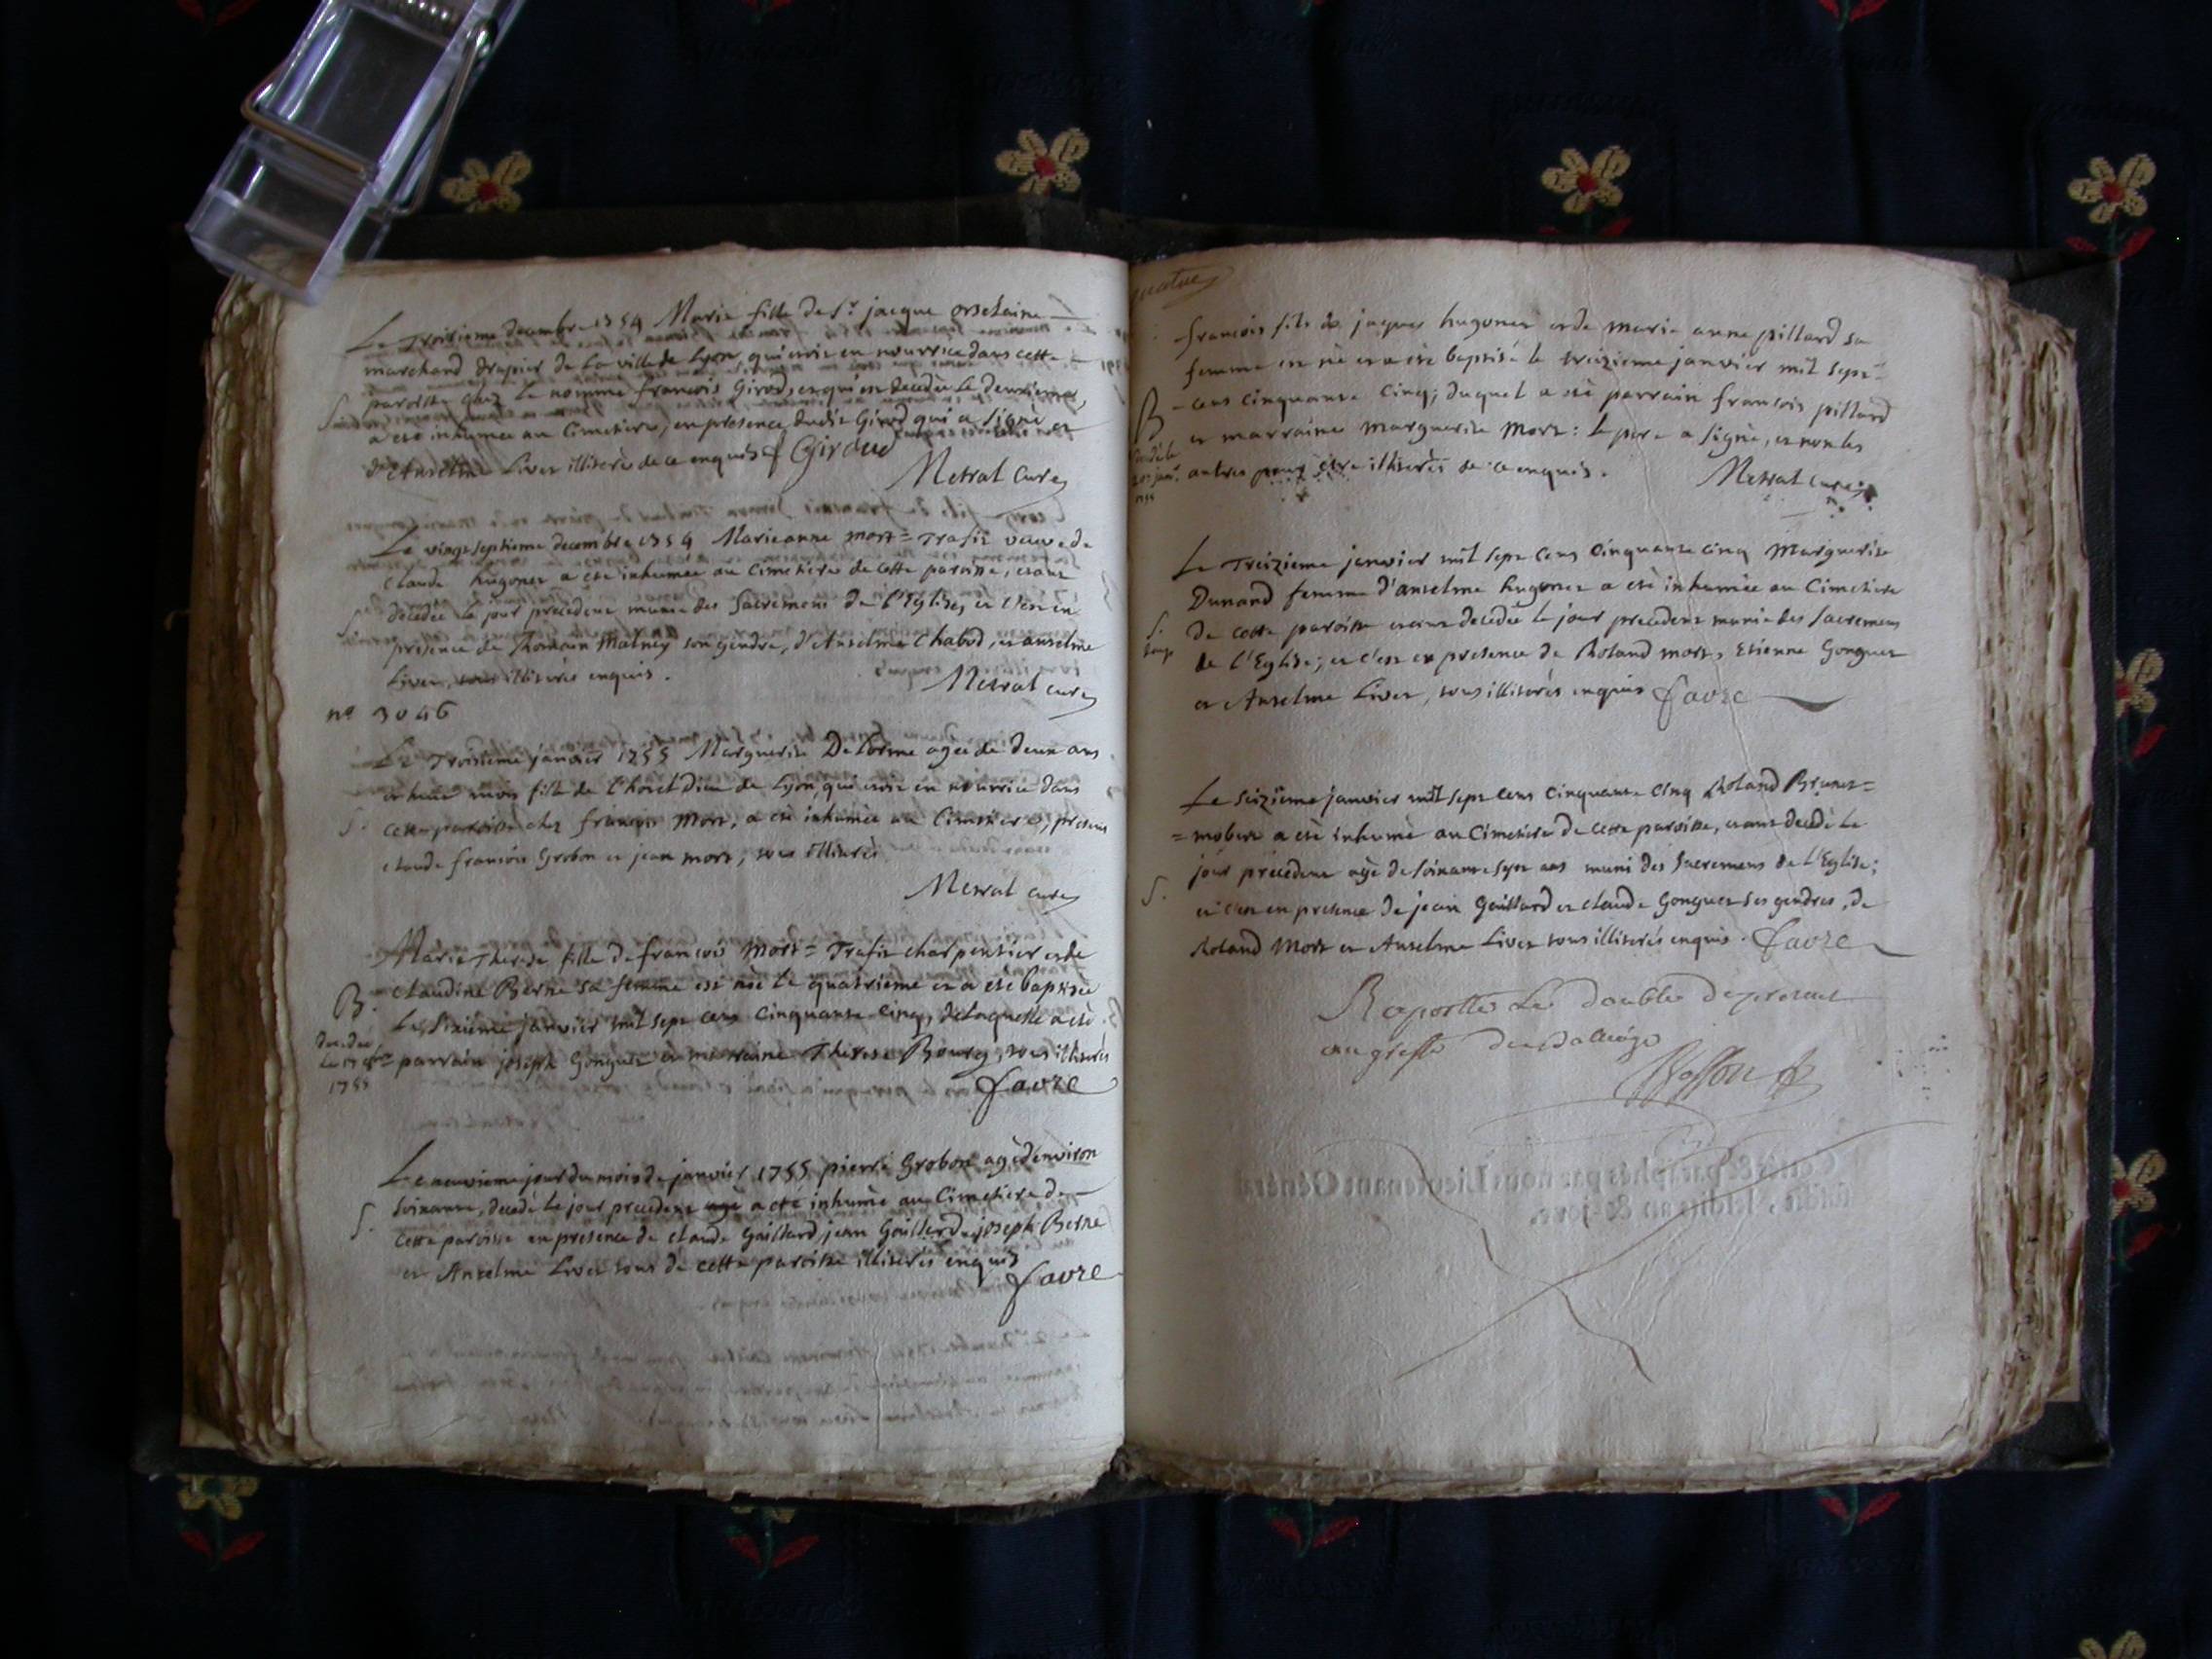 Le Troisieme decembre 1754 Marie fille de Sr jacque orselaine
marchand drapier de la ville de Lyon, qui étoit en nourrice dans cette
paroisse chez le nommé francois Girod, et qui est decedée le deuxieme,
S. a été inhumée au Cimetiere, en presence dudit Girod qui a signé et
d'Anselme Livet illiteré de ce enquis f Giroud
Metral curé
Le vingtseptieme decembre 1754 Marieanne mort = Trafit veuve de
claude hugonet a été inhumée au Cimetiere de cette paroisse, etant
decedée le jour precedent munie des Sacremens de l'Eglise, et c'est en
S. presence de Thomun Malney son gendre, d'Anselme Chabod, et anselme
Livet, tous illiterés enquis.
Metral curé
no 3046
Le Troisieme janvier 1755 Marguerite Delorme agée de deux ans
et huit mois fille de l'hotel Dieu de Lyon, qui etoit en nourrice dans
S. cette paroisse chez françois Mort, a été inhumée au Cimetiere, presens
claude françois Grobon et jean mort, tous illiterés
Metral curé
Marie Therese fille de françois Mort = Trafit charpentier et de
B. claudine Berne sa femme est née le quatrieme et a été baptisée
Le sixieme janvier mil sept cens cinquante cinq, de laquelle a été
decedée
le 17 8bre parrain joseph Gonguet et marraine Therese Bourg, tous illiterés
1755
favre
Le neuvieme jour du mois de janvier 1755 pierre Grobon agé d'environ
soixante, decedé le jour precedent agé a été inhumé au Cimetiere de
S. cette paroisse en presence de claude Gaillard, jean Gaillard, joseph Berne
et Anselme Livet tous de cette paroisse illiterés enquis
favre
quatre
francois fils de jaques hugonet et de marie anne pillard sa
femme est né et a été baptisé le treizieme janvier mil sept
B - cens cinquante cinq; duquel a été parrain francois pillard
et marraine marguerite Mort: le pere a signé, et non les
decedé le
20e janr autres pour etre illiterés de ce enquis.
1755
Metral curé
Le Treizieme janvier mil sept cens cinquante cinq Marguerite
Dunand femme d'anselme hugonet a été inhumée au Cimetiere
S. de cette paroisse etant decedée le jour precedent munie des sacremens
de l'Eglise; et c'est en presence de Roland mort, Etienne Gonguet
et Anselme Livet, tous illiterés enquis favre
Le seizieme janvier mil sept cens cinquante cinq Roland Brunet=
= mobert a été inhumé au Cimetiere de cette paroisse, etant decedé le
jour precedent agé de soixante sept ans muni des Sacremens de l'Eglise;
S. et c'est en presence de jean Gaillard et claude Gonguet ses gendres, de
Roland Mort et Anselme Livet tous illiterés enquis. favre
Raporté Le double du present
au greffe du
Cotté & paraphés par nous Lieutenant Général